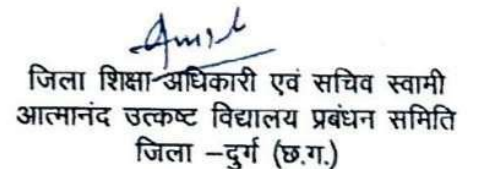 जिला शिक्षा अधिकारी एवं सचिव स्वामी
आत्मानंद उत्कष्ट विद्यालय प्रबंधन समिति
जिला –दुर्ग (छ.ग.)